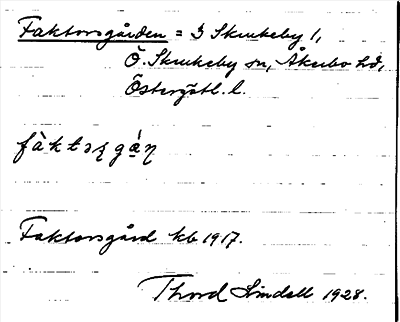 Faktorsgården = i Skrukeby 1,
Ö. Skrukeby sn, Åkerbo hd,
Östergötl. l.
fàktɔʂgá̱ɳ
Faktorsgård kb 1917.
Thord Lindell 1928.